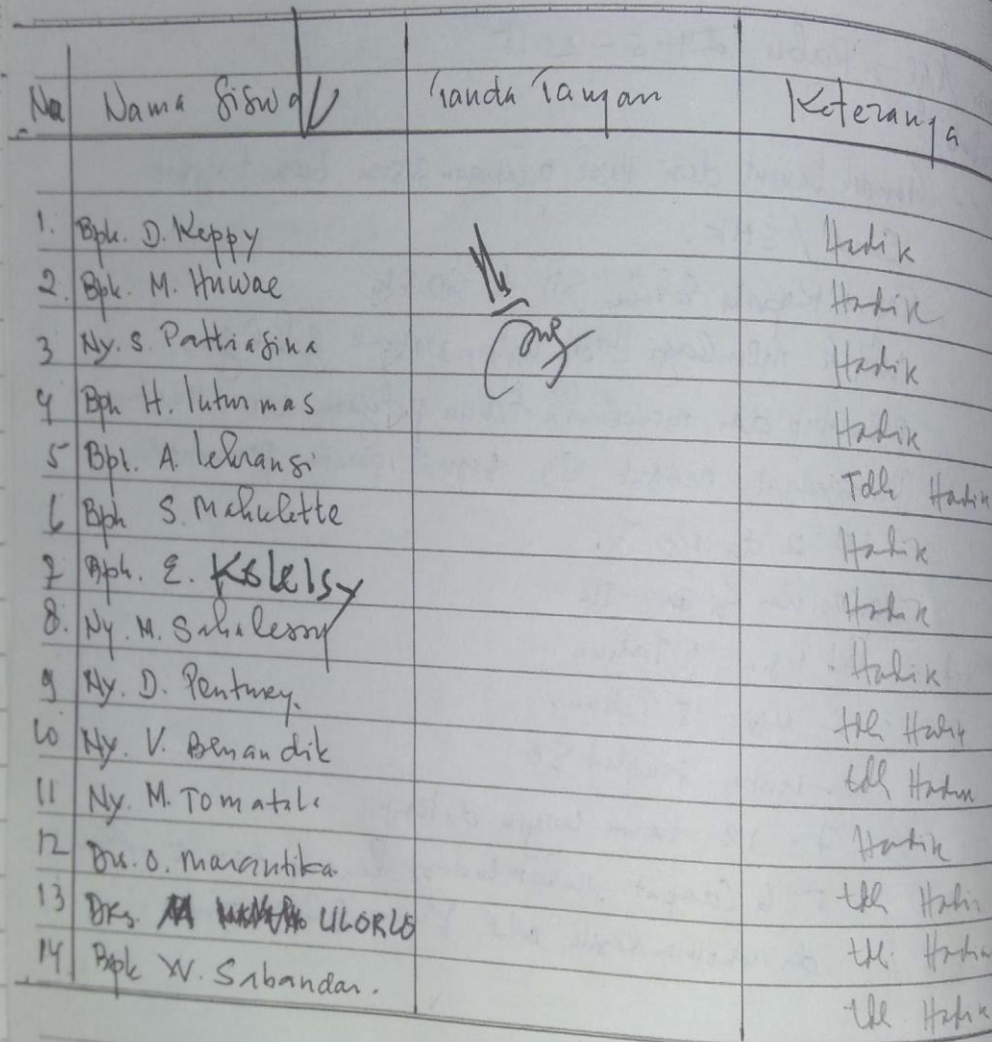 No Nama Siswa Tanda Tangan Keteranga
1. Bpk. D. Keppy Hadir
2. Bpk. M. Huwae Hadir
3 Ny. S. Pattiasina Hadir
4 Bpk H. luturmas Hadir
5 Bpk. A. lekransi Tdk Hadir
6 Bpk S. Mahulette Hadir
7 Bpk. E. Hadir
8. Ny. M. Sahalessy Hadir
9 Ny. D. Pentury. tdk Hadir
10 Ny. V. Benandik tdk Hadir
11 Ny. M. Tomatala Hadir
12 Dk. O. Marantika tdk Hadir
13 Dks. ULORLO tdk. Hadir
14 Bpk W. Sabandar. tdk Hadir